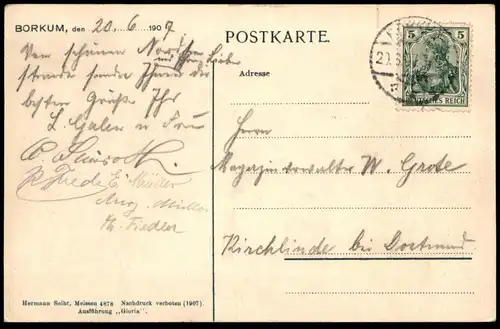 BORKUM, den 20. 6. 1907
Vom schönen Nord-
und Frau Liebe
strande sendet Ihnen die
besten Grüße Ihr
L. Galen u Frau
E. Müller
Aug. Müller
Th. Fiedler
Hermann Seibt, Meissen 4878 Nachdruck verboten (1907).
Ausführung „Gloria".
POSTKARTE.
Adresse
Herrn
Magazinverwalter W. Grote
Kirchlinde bei Dortmund
5 5
DEUTSCHES REICH